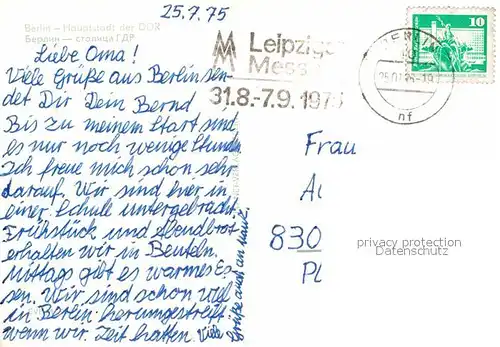 25.7.75
Berlin – Hauptstadt der DDR
Берлин – столица ГДР
Liebe Oma!
Viele Grüße aus Berlin sen-
det Dir Dein Bernd
Bis zu meinem Start sind
es nur noch wenige Stunden
Ich freue mich schon sehr
darauf. Wir sind hier in
einer Schule untergebracht.
Frühstück und Abendbrot
erhalten wir in Beuteln.
Mittags gibt es warmes Es-
sen. Wir sind schon viel
in Berlin herumgestreift
wenn wir Zeit hatten. Viele
Grüße auch an
MM Leipziger
Mess
31.8.-7.9.1975
BERLIN
25.07.75-19
nf
10
DDR
Frau
Al
830
Pl
privacy protection
Datenschutz